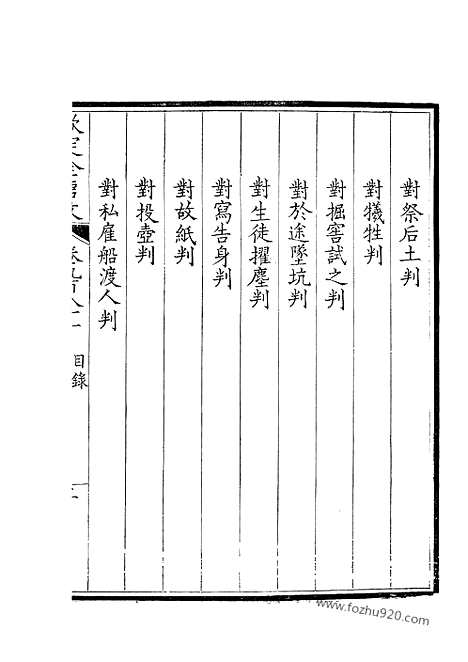 對祭后土判
對犧牲判
對掘窖試之判
對於途墜坑判
對生徒擢塵判
對寫告身判
對故紙判
對投壺判
對私雇船渡人判
欽定全唐文
目錄
www.fozhu920.com